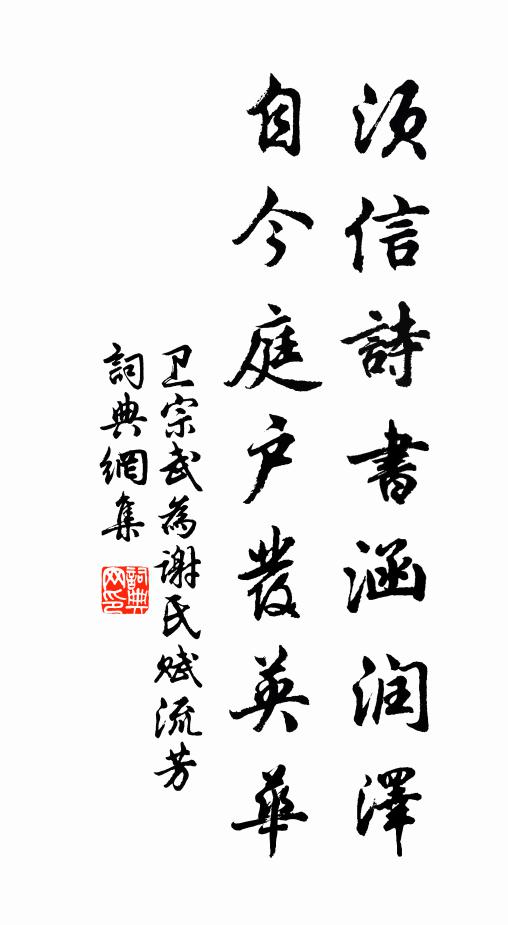 须信詩書涵润澤
自今庭户發英華
卫宗武為谢氏赋流芳
詞典網集
詞典
网印